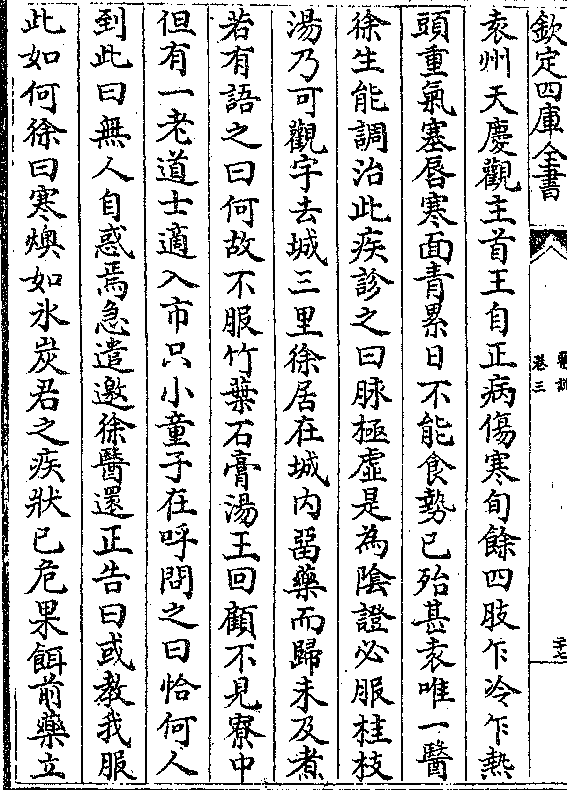 欽定四庫全書
醫説
卷三
袁州天慶觀主首王自正病傷寒旬餘四肢乍冷乍熱
頭重氣塞唇寒面青累日不能食勢已殆甚袁唯一醫
徐生能調治此疾診之曰脉極虛是為陰證必服桂枝
湯乃可觀字去城三里徐居在城内留藥而歸未及煮
若有語之曰何故不服竹葉石膏湯王回顧不見寮中
但有一老道士適入市只小童子在呼問之曰恰何人
到此曰無人自惑焉急遣邀徐醫還正告曰或教我服
此如何徐曰寒燠如氷炭君之疾狀已危果餌前藥立